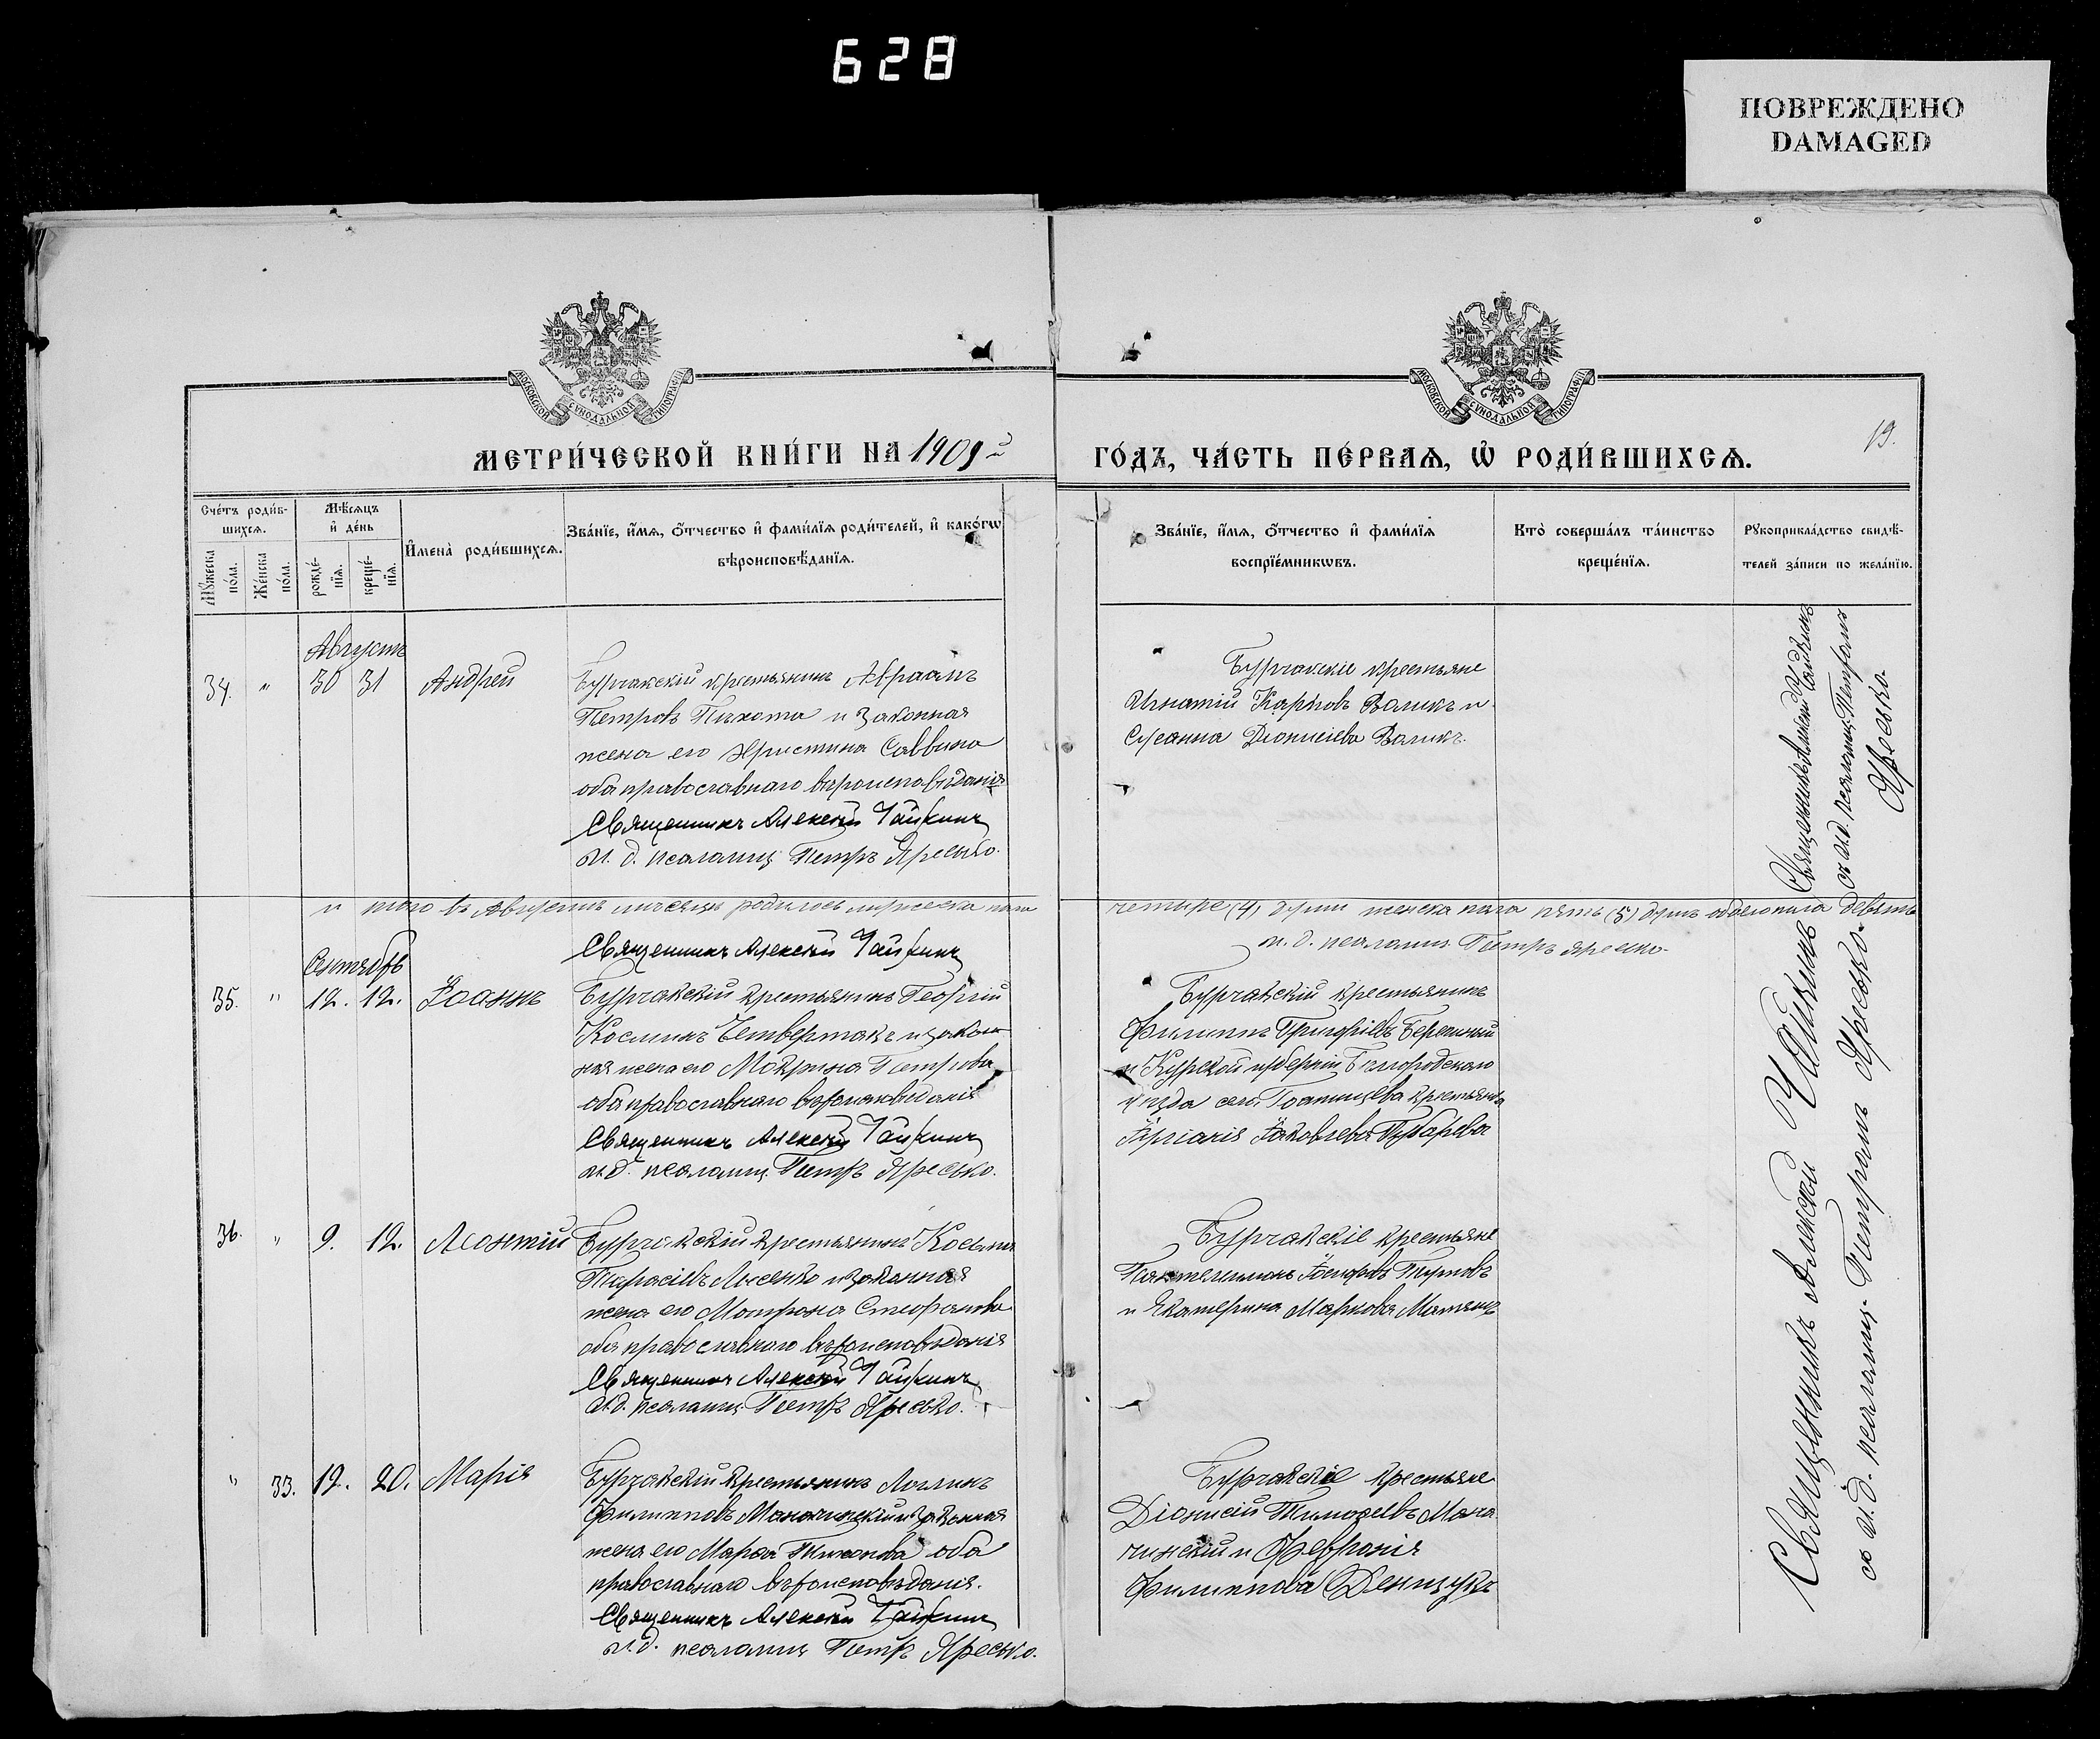 628
ПОВРЕЖДЕНО
DAMAGED
МОСКОВСКОЙ СѴНОДАЛЬНОЙ ТИПОГРАФІИ
МОСКОВСКОЙ СѴНОДАЛЬНОЙ ТИПОГРАФІИ
МЕТРИ́ЧЕСКОЙ КНИ́ГИ НА 1909й
ГО́ДЪ, ЧА́СТЬ ПЕ́РВАѦ, Ѡ҆ РОДИ́ВШИХСѦ.
19.
Сче́тъ роди́в-
шихсѧ.
Мѣ́сѧцъ
и҆ де́нь
Мꙋ́жеска
по́ла.
Же́нска
по́ла.
рожде́-
нїѧ.
креще́-
нїѧ.
И҆мена̀ роди́вшихсѧ.
Зва́нїе, и҆́мѧ, ѻ҆́тчество и҆ фами́лїѧ роди́телей, и҆ како́гѡ
вѣроисповѣ́данїѧ.
Зва́нїе, и҆́мѧ, ѻ҆́тчество и҆ фами́лїѧ
воспрїе́мникѡвъ.
Кто̀ соверша́лъ та́инство
креще́нїѧ.
Рꙋкоприкла́дство свидѣ́-
телей за́писи по жела́нїю.
Августъ
34. " 30 31 Андрей
Бурчакскій крестьянинъ Авраамъ
Петровъ Пихота и законная
жена его Христина Саввина
оба православнаго вѣроисповѣданія
Священникъ Алексій Чайкинъ
и. д. псаломщ. Петръ Яресько.
Бурчакскіе крестьяне
Игнатій Карповъ Валикъ и
Сусанна Діонисіева Валикъ.
Священникъ Алексій Чайкинъ
съ и.д. псаломщ. Петромъ
Яресько.
и того въ Августѣ мѣсяцѣ родилось мужеска пола
четыре (4) души женска пола пять (5) душъ обоего пола девять
Священникъ Алексій Чайкинъ
и. д. псаломщ. Петръ Яресько.
Сентябрь
35. " 12. 12. Іоаннъ
Бурчакскій крестьянинъ Георгій
Косминъ Четвертакъ и закон
ная жена его Макрина Петрова
оба православнаго вѣроисповѣданія
Священникъ Алексій Чайкинъ
и.д. псаломщ. Петръ Яресько.
Бурчакскій крестьянинъ
Филиппъ Григоріевъ Бережный
и Курской губерніи Бѣлгородскаго
уѣзда села крестьянка
Яковлева
36. " 9. 12. Леонтій
Бурчакскій крестьянинъ Косьма
Тарасіевъ Лысенко и законная
жена его Матрона Стефанова
оба православнаго вѣроисповѣданія
Священникъ Алексій Чайкинъ
и.д. псаломщ. Петръ Яресько.
Бурчакскіе крестьяне
Пантелеимонъ
и Екатерина Маркова
" 33. 12. 20. Марія
Бурчакскій крестьянинъ Логгинъ
Филипповъ и законная
жена его Марѳа Тихонова оба
православнаго вѣроисповѣданія.
Священникъ Алексій Чайкинъ
и.д. псаломщ. Петръ Яресько.
Бурчакскіе крестьяне
Діонисій Тимоѳеевъ Мана
чинскій и Февронія
Филиппова
Священникъ Алексій Чайкинъ
съ и.д. псаломщ. Петромъ Яресько.